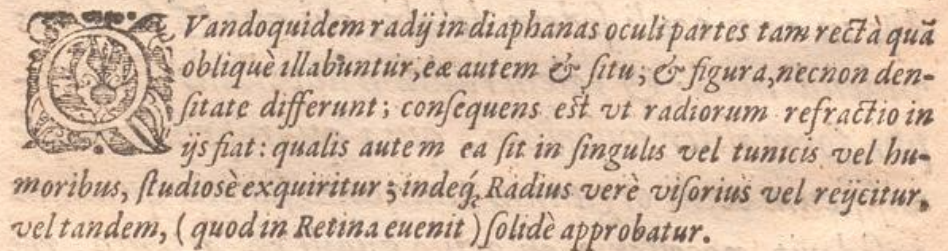 QVandoquidem radij in diaphanas oculi partes tam rectà quã
obliquè illabuntur, eæ autem & situ; & figura, necnon den-
sitate differunt; consequens est vt radiorum refractio in
ijs fiat: qualis autem ea sit in singulis vel tunicis vel hu-
moribus, studiosè exquiritur; indeq́; Radius verè visorius vel reijcitur,
vel tandem, (quod in Retina euenit) solidè approbatur.